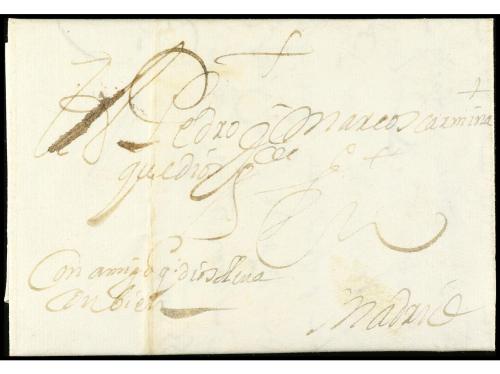 A Pedro Marcos Carmina
que dios gde
Con amigo q. dios lleva
con bien
Madrid